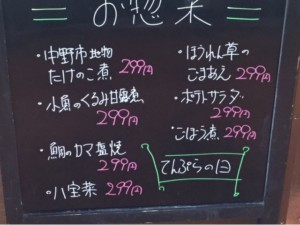 お惣菜
・中野市地物
たけのこ煮 299円
・小魚のくるみ甘露煮
299円
・鯛のカマ塩焼
299円
・八宝菜 299円
・ほうれん草の
ごまあえ 299円
・ポテトサラダ
299円
・ごぼう煮 299円
てんぷらの日